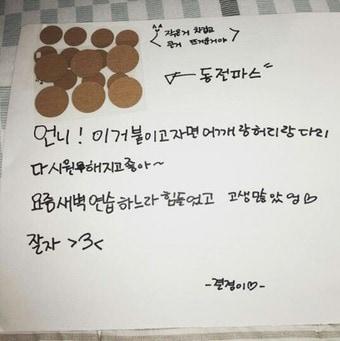 ^^
< 작은거 차갑고
큰거 뜨거운거야 >
동전파스"
언니! 이거붙이고자면어깨랑허리랑다리
다시원해지고좋아~
요즘새벽연습하느라힘들었고 고생많았엉♡
잘자 >3<
-결경이♡-